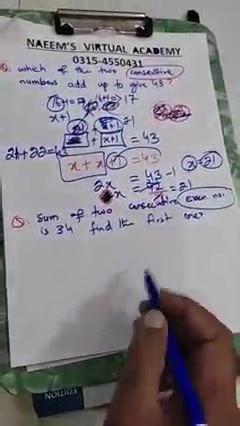 NAEEM'S VIRTUAL ACADEMY
0315-4550431
Q: which of the two consecutive
numbers add up to give 43?
17
x+1
21
x + x+1 = 43
21+22=43
x + x +1 = 43
x=21
2x = 43-1
x = 42 = 21
Q: Sum of two consecutive Even no:
is 34 find the first one?
EDITION